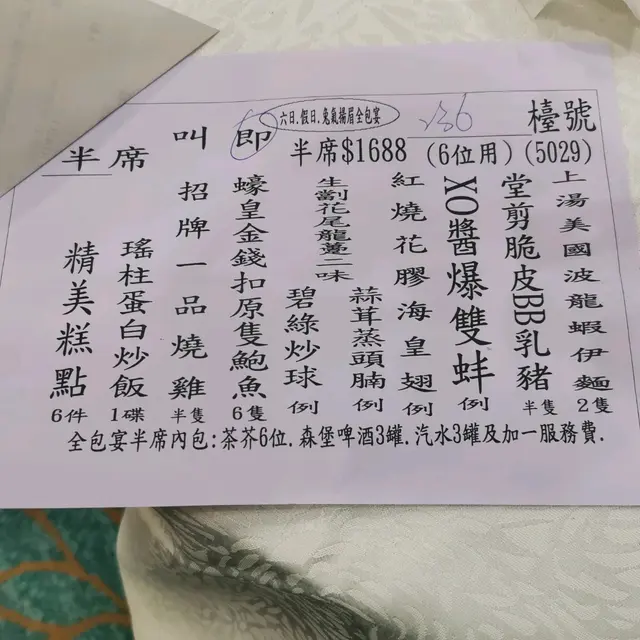 檯號
236
六日.假日.兔氣揚眉全包宴
半席$1688 (6位用) (5029)
即
叫
半席
上湯美國波龍蝦伊麵 2隻
堂剪脆皮BB乳豬 半隻
XO醬爆雙蚌 例
紅燒花膠海皇翅 例
生劏花尾龍躉二味
蒜茸蒸頭腩 例
碧綠炒球 例
蠔皇金錢扣原隻鮑魚 6隻
招牌一品燒雞 半隻
瑤柱蛋白炒飯 1碟
精美糕點 6件
全包宴半席內包:茶芥6位.森堡啤酒3罐.汽水3罐及加一服務費.